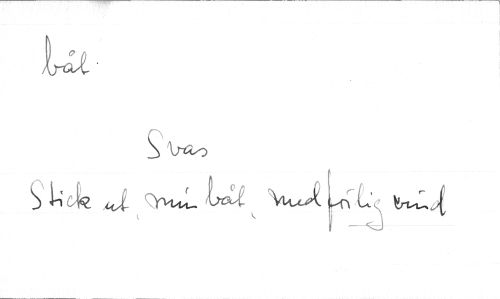 båt.
Svas
Stick ut, min båt, med föilig vind